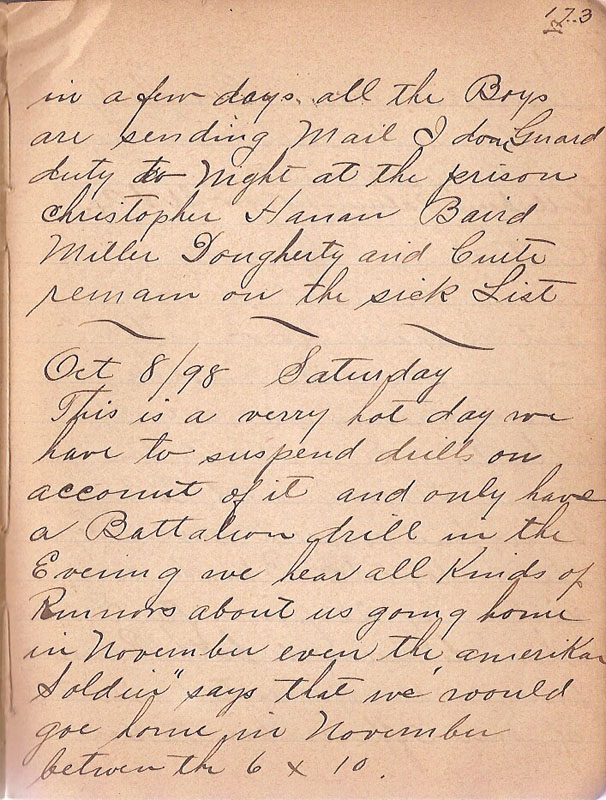 173
in a few days. all the Boys
are sending Mail I don Guard
duty to Night at the prison
Christopher Hanan Baird
Miller Dougherty and
remain on the sick List
Oct 8/98 Saturday
This is a verry hot day we
have to suspend drills on
account of it and only have
a Battalion drill in the
Evening we hear all Kinds of
Rumors about us going home
in November even the, amerikan
Soldier" says that we would
goe home in November
betwen the 6 x 10.